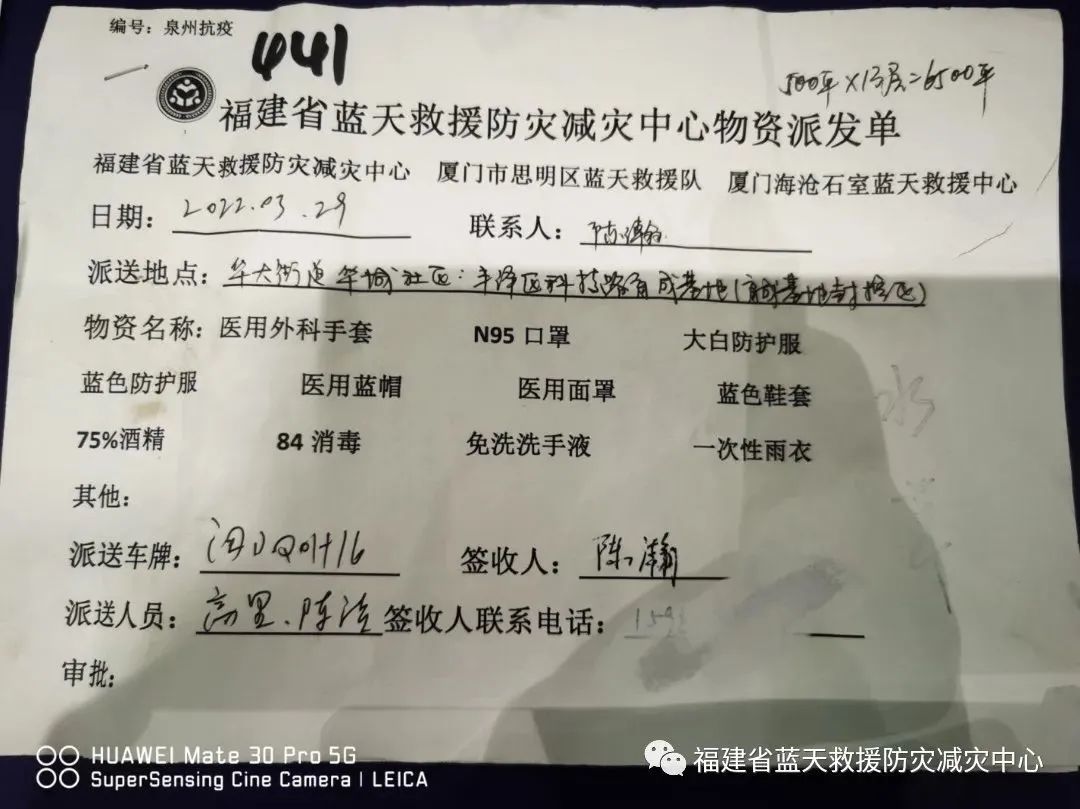 编号：泉州抗疫 441
500平×13层=6500平
福建省蓝天救援防灾减灾中心物资派发单
福建省蓝天救援防灾减灾中心 厦门市思明区蓝天救援队 厦门海沧石室蓝天救援中心
日期：2022.03.29 联系人：陈瀚
派送地点：华大街道华城社区：丰泽区科技路育成基地(育成基地封控区)
物资名称：医用外科手套 N95口罩 大白防护服
蓝色防护服 医用蓝帽 医用面罩 蓝色鞋套
75%酒精 84消毒 免洗洗手液 一次性雨衣
其他：
派送车牌： 签收人：陈瀚
派送人员： 签收人联系电话：
审批：
水
HUAWEI Mate 30 Pro 5G
SuperSensing Cine Camera | LEICA
福建省蓝天救援防灾减灾中心